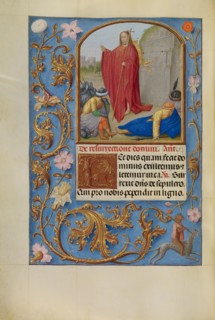 De resurrectione domini. Añ.
Hec dies quam fecit do
minus exultemus ⁊
letemur in ea. ℣. Sur
rexit dñs de sepulcro.
Qui pro nobis pependit in ligno.